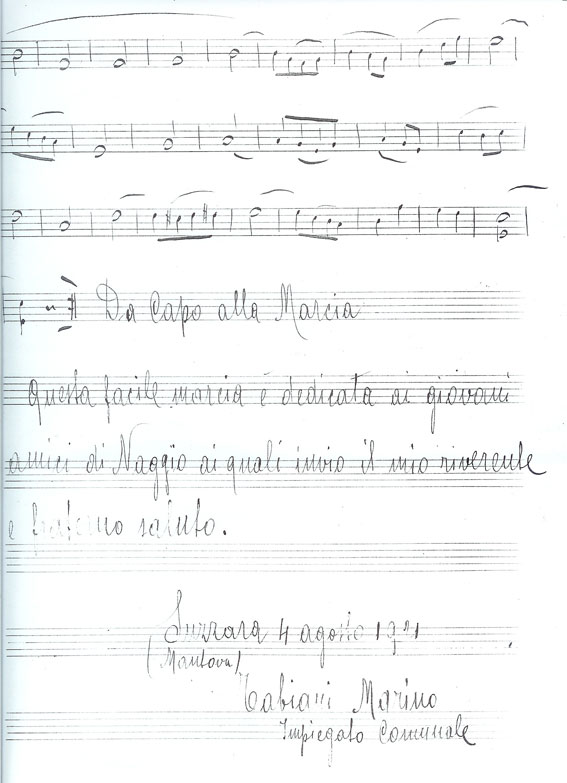 Da Capo alla Marcia
Questa facile marcia è dedicata ai giovani
amici di Naggio ai quali invio il mio riverente
e fraterno saluto.
Suzzara 4 agosto 1921
(Mantova)
Tabiani Marino
Impiegato Comunale